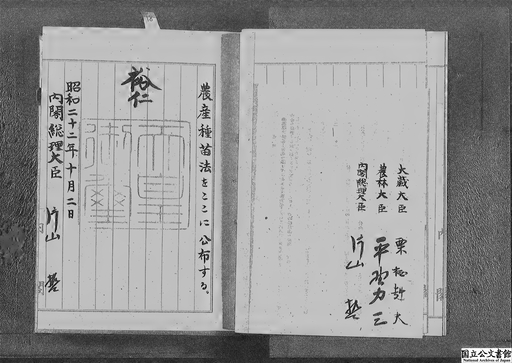 大蔵大臣 栗栖赳夫
農林大臣 平野力三
内閣総理大臣 片山 哲
農産種苗法をここに公布する。
裕仁
天皇御璽
昭和二十二年十月二日
内閣総理大臣 片山 哲
内閣
国立公文書館
National Archives of Japan